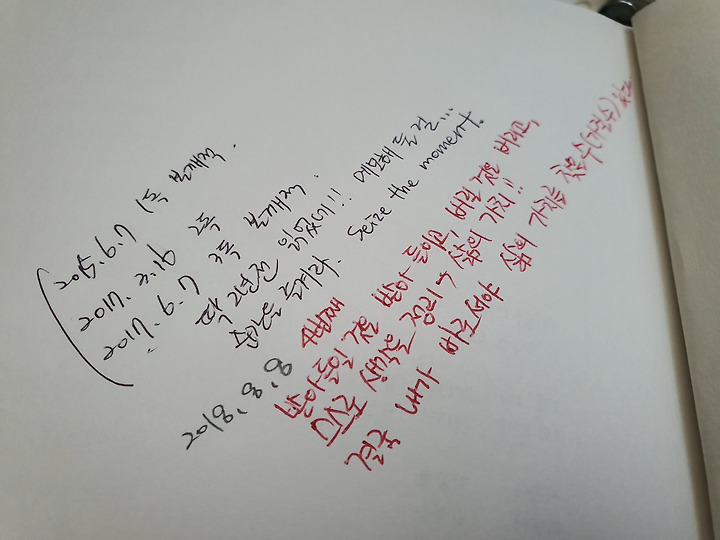 2015.6.7 1독 본깨적.
2017.3.16 2독
2017.6.7 3독 본깨적.
딱 2년전 읽었네!! 메모해 둘걸...
순간을 즐겨라. Seize the moment.
2018.8.8 4번째
받아들일 것은 받아 들이고, 버릴 것은 버리고,
스스로 생각을 정리 → 삶의 가치!!
결국 내가 바로서야 삶의 가치를 찾을수(가질수) 있다.